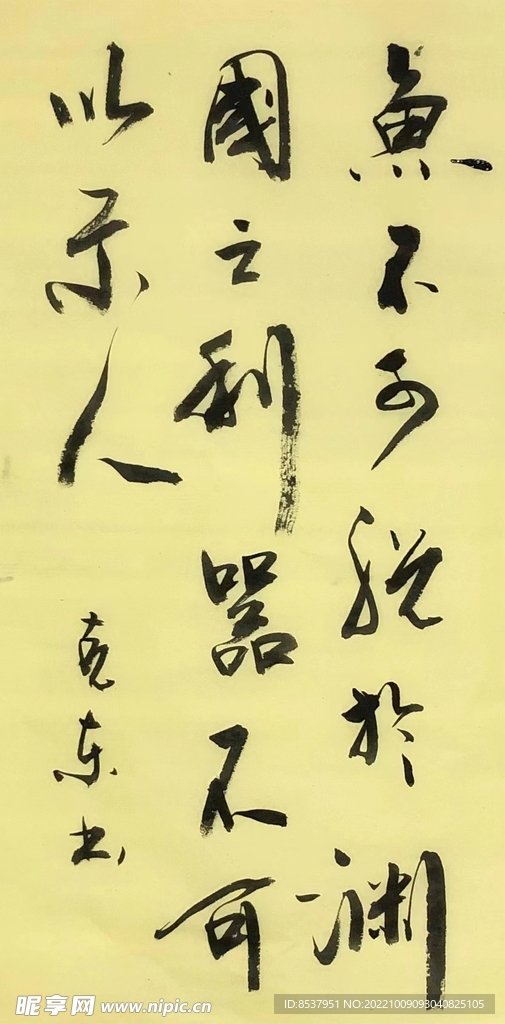 魚不可脱於淵
國之利器不可
以示人
克东书
昵享网 www.nipic.cn
ID:8537951 NO:20221009093040825105